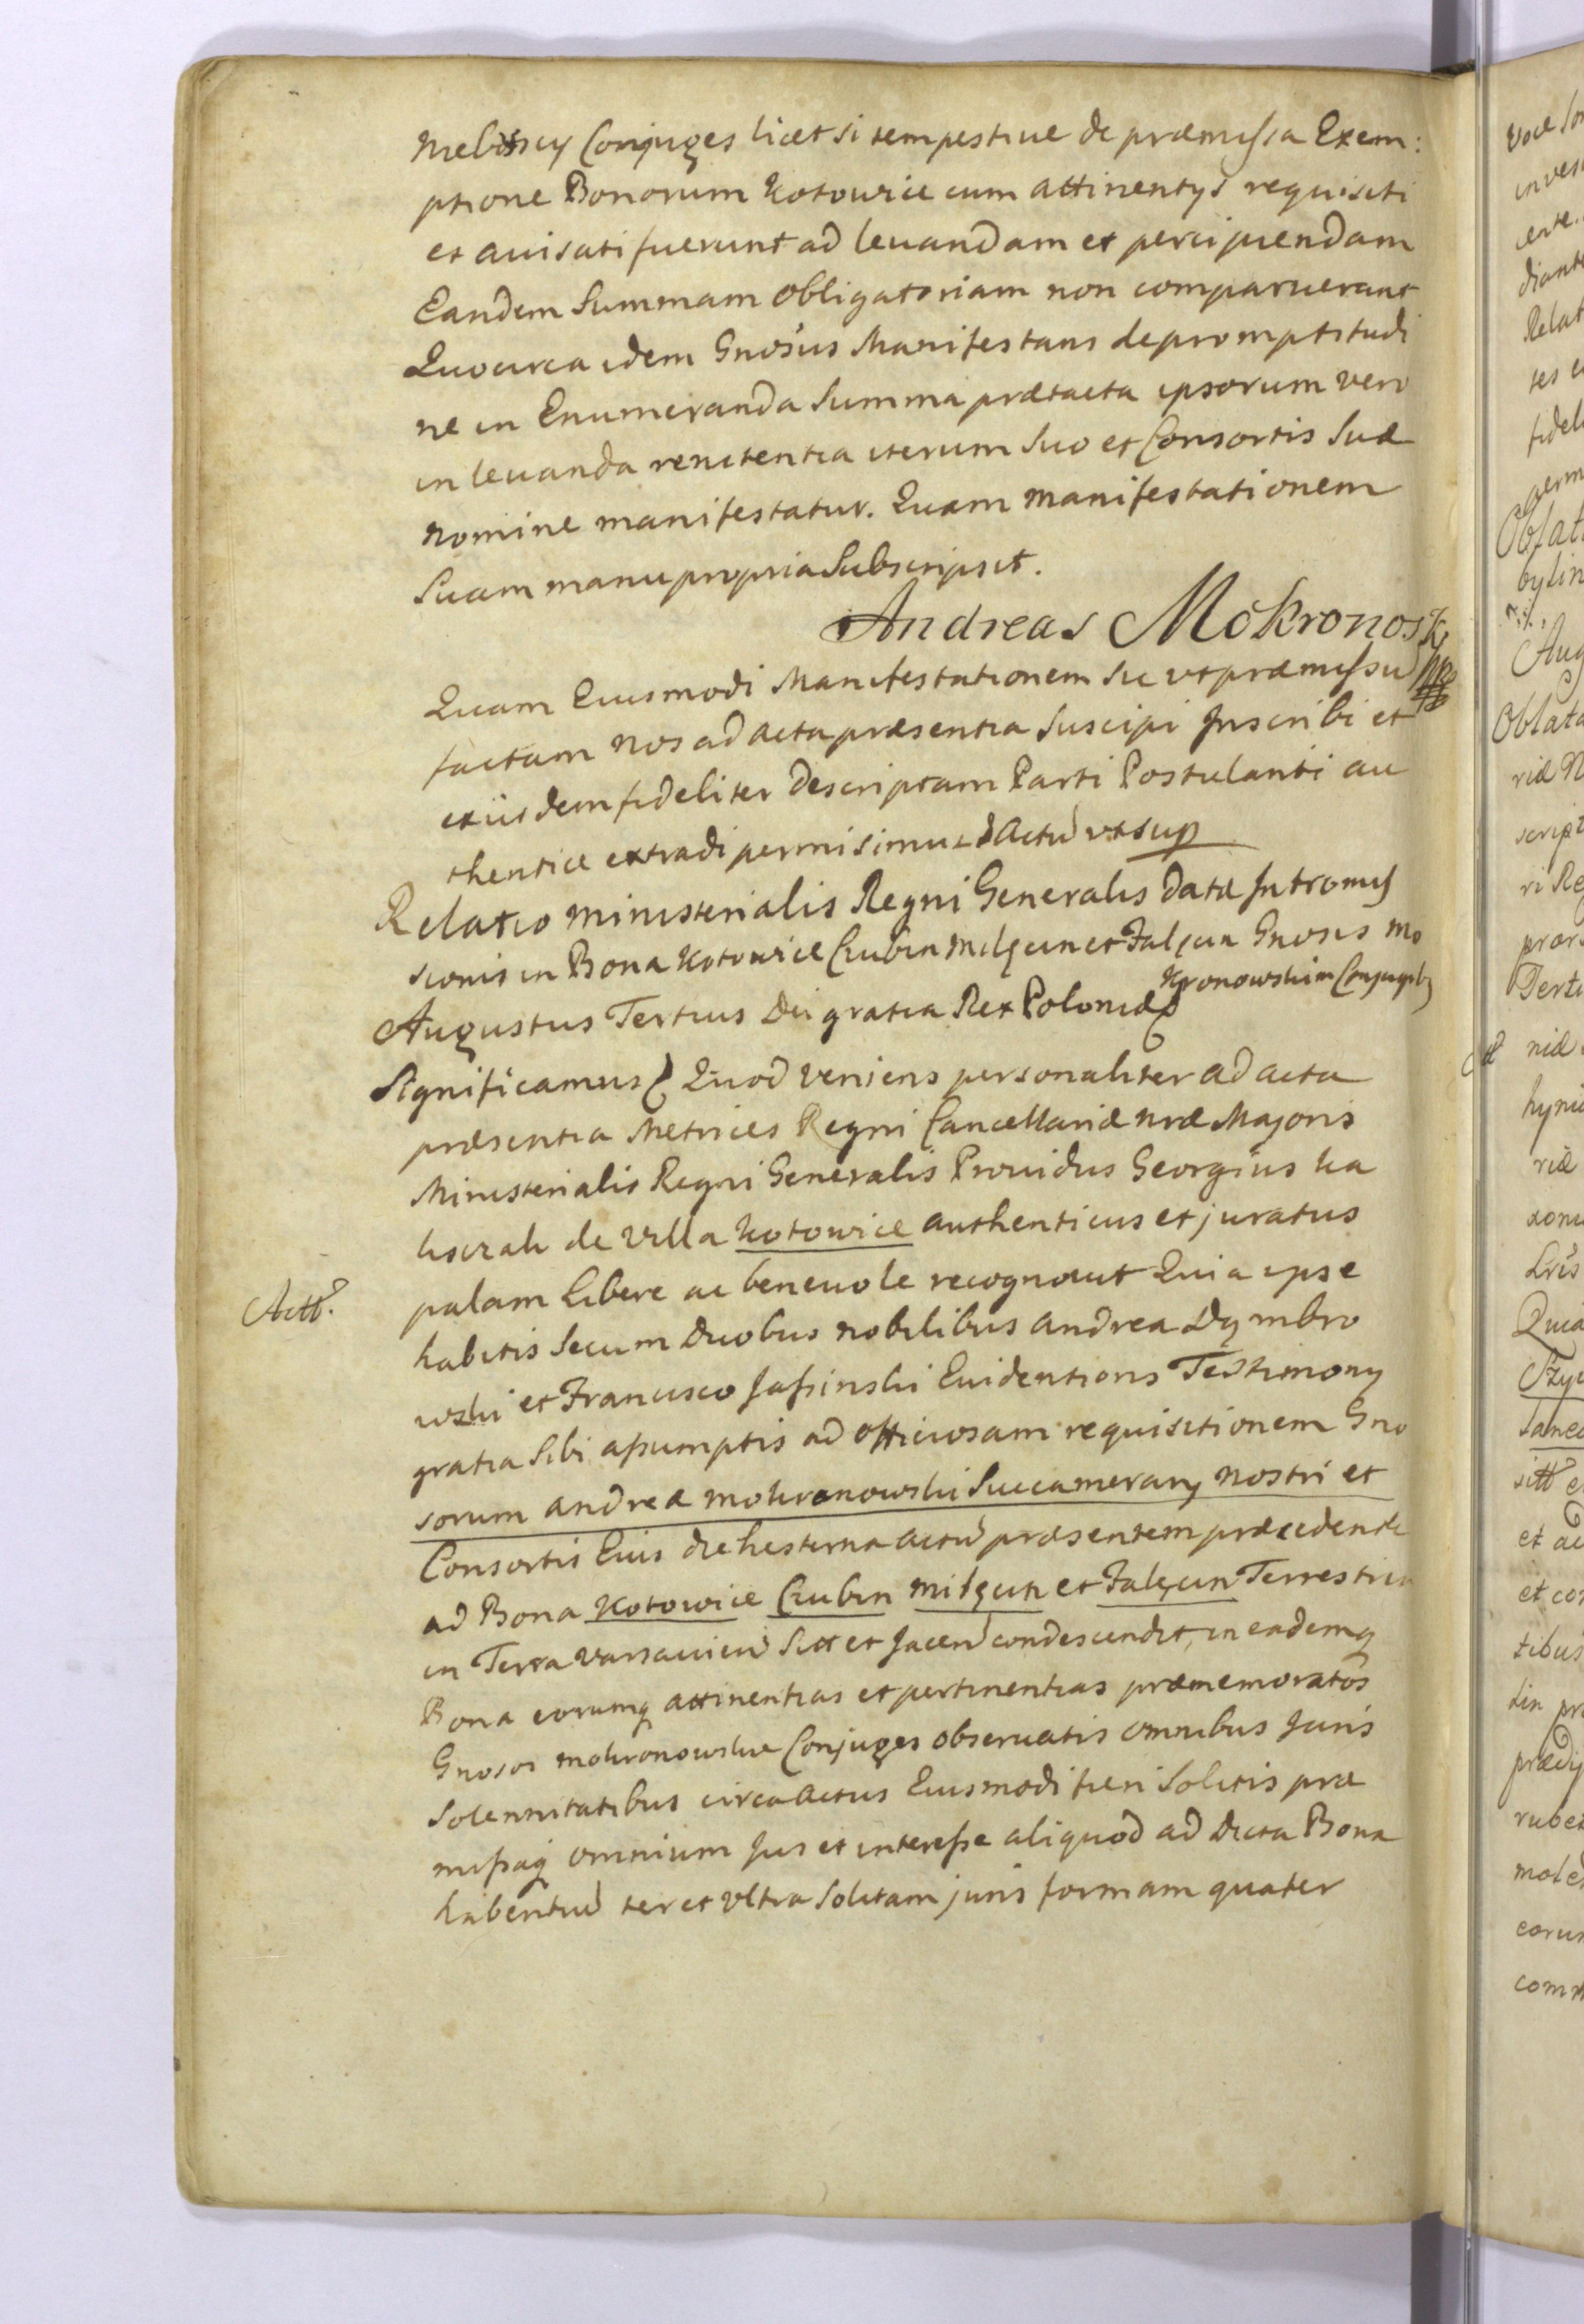 Conjuges licet si tempestiue de præmissa Exem:
ptione Bonorum Kotowice cum attinentys requisiti
et auisati fuerunt ad leuandam et percipiendam
Eandem Summam obligatoriam non comparuerunt
Quocirca idem Gnosus Manifestans de promptitudi
ne in Enumeranda Summa prætacta ipsorum vero
in leuanda renitentia iterum Suo et Consortis Suæ
nomine manifestatur. Quam manifestationem
Suam manu propria Subscripsit.
Andreas Mokronosk
Quam Eiusmodi Manifestationem Sic vt præmissu
factam nos ad acta præsentia Suscipi Inscribi et
ex iisdem fideliter descriptam Parti Postulanti au
thentice extradi permisimus Actu vt sup
Relatio Ministerialis Regni Generalis datæ Intromis
sionis in Bona Kotowice Czubin Milęcin et Falęcin Gnosis Mo
kronowskim Conjugib
Augustus Tertius Dei gratia Rex Poloniæ
Significamus Quod veniens personaliter ad acta
præsentia Metrices Regni Cancellariæ nræ Majoris
Ministerialis Regni Generalis Prouidus Georgius Ka
de Villa Kotowice authenticus et juratus
Actt.
palam libere ac beneuole recognouit Quia ipse
habitis Secum Duobus nobilibus Andrea Dąmbro
wski et Francisco Jasinski Euidentioris Testimony
gratia Sibi assumptis ad officiosam requisitionem Gno
sorum Andreæ Mokronowski Succamerary nostri et
Consortis Eius die hesterna actu præsentem præcedente
ad Bona Kotowice Czubin Milęcin et Falęcin Terrestria
in Terra Varsauien Sitt et Jacen condescendit, in eademq
Bona eorumq attinentias et pertinentias præmemoratos
Gnosos Mokronowskie Conjuges obseruatis omnibus Juris
Solennitatibus circa actus Eiusmodi fieri Solitis præ
missaq omnium Jus et interesse aliquod ad Dicta Bona
habentiu ter et vltra Solitam juris formam quater